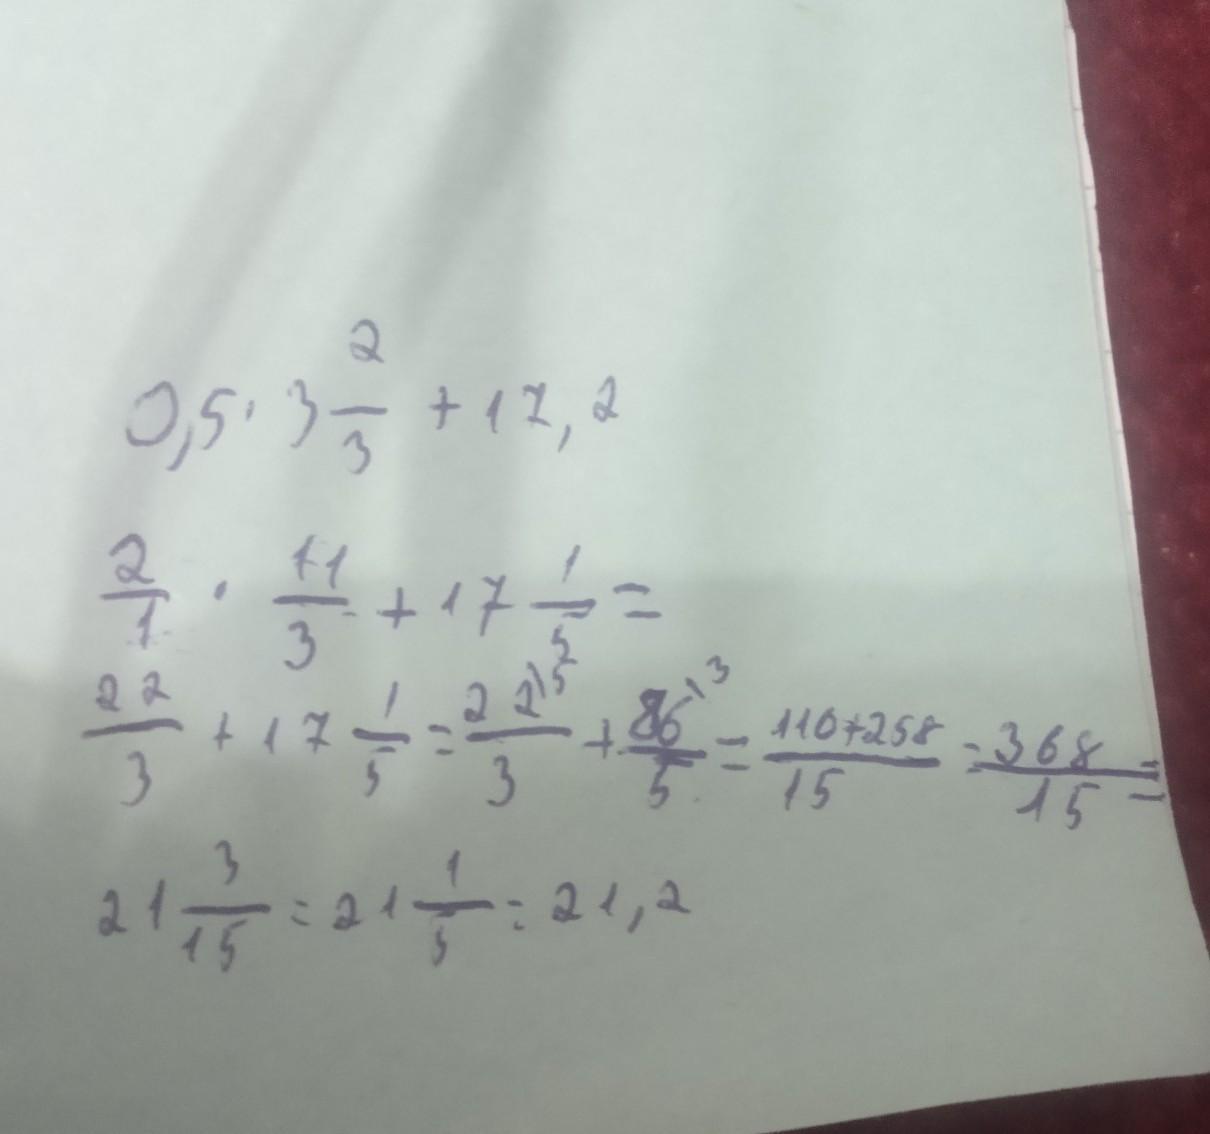 0,5 · 3 2/3 + 17,2
2/1 · 11/3 + 17 1/5 =
22/3 + 17 1/5 = 22\5/3 + 86\3/5 = 110+258/15 = 368/15 =
21 3/15 = 21 1/5 = 21,2